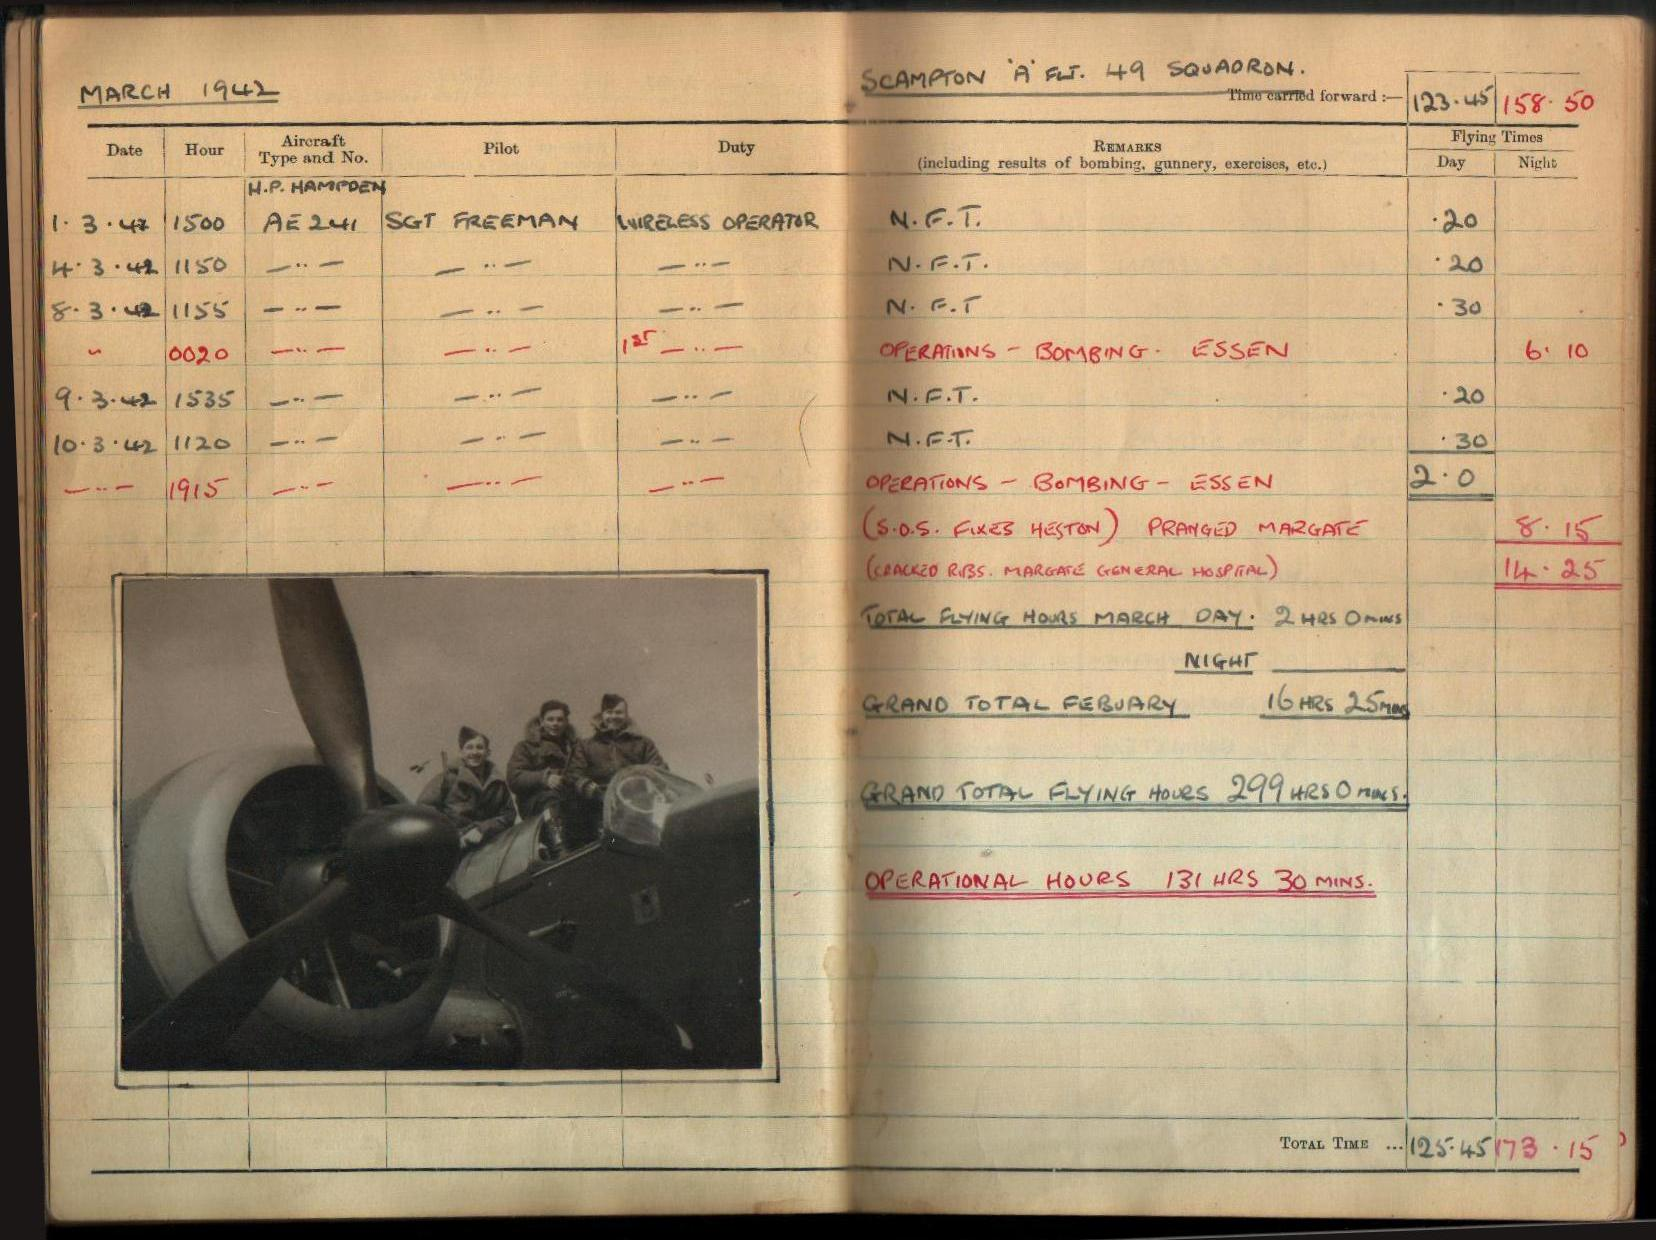 MARCH 1942
SCAMPTON 'A' FLT. 49 SQUADRON.
Time carried forward :— 123.45 158.50
Date Hour Aircraft Type and No. Pilot Duty REMARKS (including results of bombing, gunnery, exercises, etc.) Flying Times Day Night
H.P. HAMPDEN
1.3.42 1500 AE 241 SGT FREEMAN WIRELESS OPERATOR N.F.T. .20
4.3.42 1150 — " — — " — — " — N.F.T. .20
8.3.42 1155 — " — — " — — " — N.F.T .30
" 0020 — " — — " — 1ST — " — OPERATIONS - BOMBING - ESSEN 6.10
9.3.42 1535 — " — — " — — " — N.F.T. .20
10.3.42 1120 — " — — " — — " — N.F.T. .30
— " — 1915 — " — — " — — " — OPERATIONS - BOMBING - ESSEN 2.0
(S.O.S. FIXES HESTON) PRANGED MARGATE 8.15
(CRACKED RIBS. MARGATE GENERAL HOSPITAL) 14.25
TOTAL FLYING HOURS MARCH DAY. 2 HRS 0 MINS
NIGHT
GRAND TOTAL FEBUARY 16 HRS 25 MINS
GRAND TOTAL FLYING HOURS 299 HRS 0 MINS.
OPERATIONAL HOURS 131 HRS 30 MINS.
TOTAL TIME ... 125.45 173.15